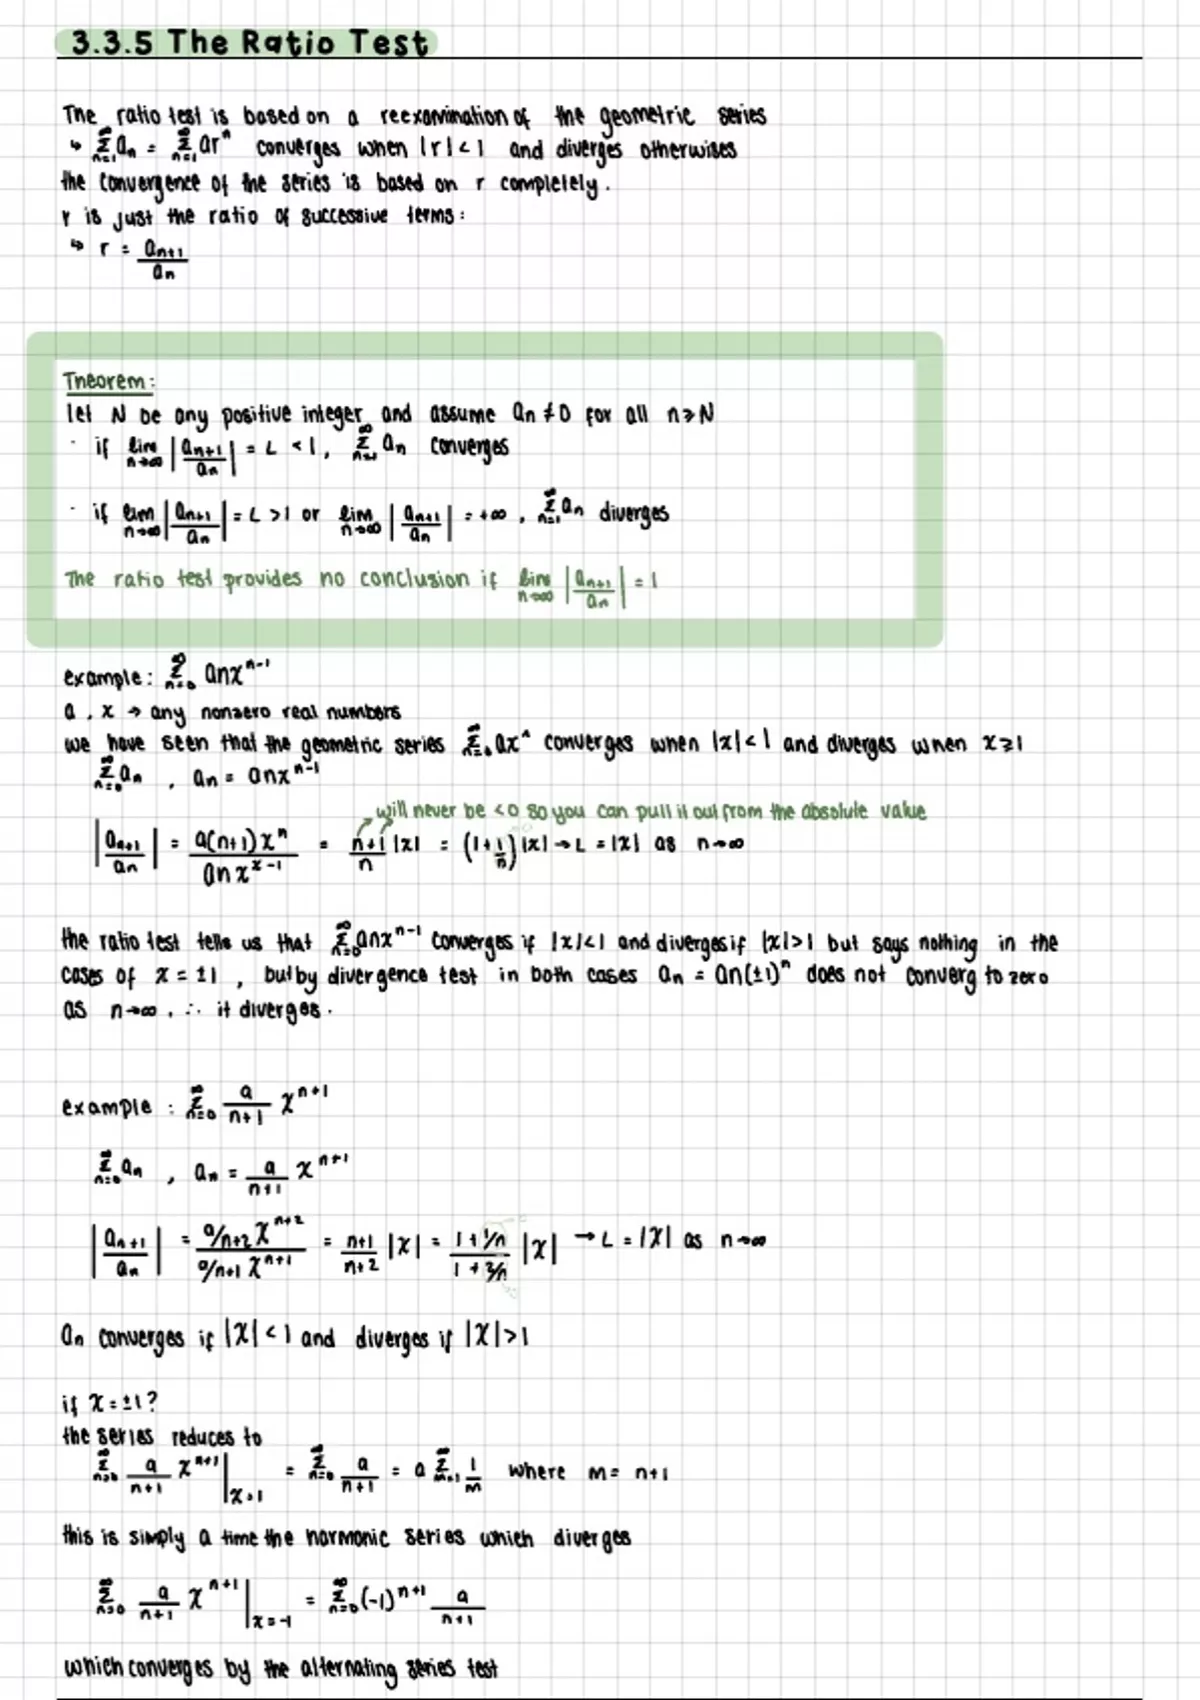 3.3.5 The Ratio Test
The ratio test is based on a reexamination of the geometric series
↳ ∑_{n=1}^{∞} aₙ = ∑_{n=1}^{∞} arⁿ converges when |r| < 1 and diverges otherwises
the convergence of the series is based on r completely.
r is just the ratio of successive terms:
↳ r = aₙ₊₁/aₙ
Theorem:
let N be any positive integer and assume aₙ ≠ 0 for all n ≥ N
· if lim_{n→∞} |aₙ₊₁/aₙ| = L < 1, ∑_{n=1}^{∞} aₙ converges
· if lim_{n→∞} |aₙ₊₁/aₙ| = L > 1 or lim_{n→∞} |aₙ₊₁/aₙ| = +∞, ∑_{n=1}^{∞} aₙ diverges
The ratio test provides no conclusion if lim_{n→∞} |aₙ₊₁/aₙ| = 1
example: ∑_{n=0}^{∞} anxⁿ⁻¹
a, x → any nonzero real numbers
we have seen that the geometric series ∑_{n=0}^{∞} axⁿ converges when |x| < 1 and diverges when x ≥ 1
∑_{n=0}^{∞} aₙ, aₙ = anxⁿ⁻¹
will never be < 0 so you can pull it out from the absolute value
|aₙ₊₁/aₙ| = a(n+1)xⁿ / anxˣ⁻¹ = (n+1)/n |x| = (1 + 1/n)|x| → L = |x| as n→∞
the ratio test tells us that ∑_{n=0}^{∞} anxⁿ⁻¹ converges if |x| < 1 and diverges if |x| > 1 but says nothing in the
cases of x = ±1, but by divergence test in both cases aₙ = an(±1)ⁿ does not converg to zero
as n→∞, ∴ it diverges.
example: ∑_{n=0}^{∞} a/(n+1) xⁿ⁺¹
∑_{n=0}^{∞} aₙ, aₙ = a/(n+1) xⁿ⁺¹
|aₙ₊₁/aₙ| = (a/n+2 xⁿ⁺²)/(a/n+1 xⁿ⁺¹) = (n+1)/(n+2) |x| = (1 + 1/n)/(1 + 2/n) |x| → L = |x| as n→∞
aₙ converges if |x| < 1 and diverges if |x| > 1
if x = ±1?
the series reduces to
∑_{n=0}^{∞} a/(n+1) xⁿ⁺¹ |_{x=1} = ∑_{n=0}^{∞} a/(n+1) = a ∑_{m=1}^{∞} 1/m where m = n+1
this is simply a time the harmonic series which diverges
∑_{n=0}^{∞} a/(n+1) xⁿ⁺¹ |_{x=-1} = ∑_{n=0}^{∞} (-1)ⁿ⁺¹ a/(n+1)
which converges by the alternating series test